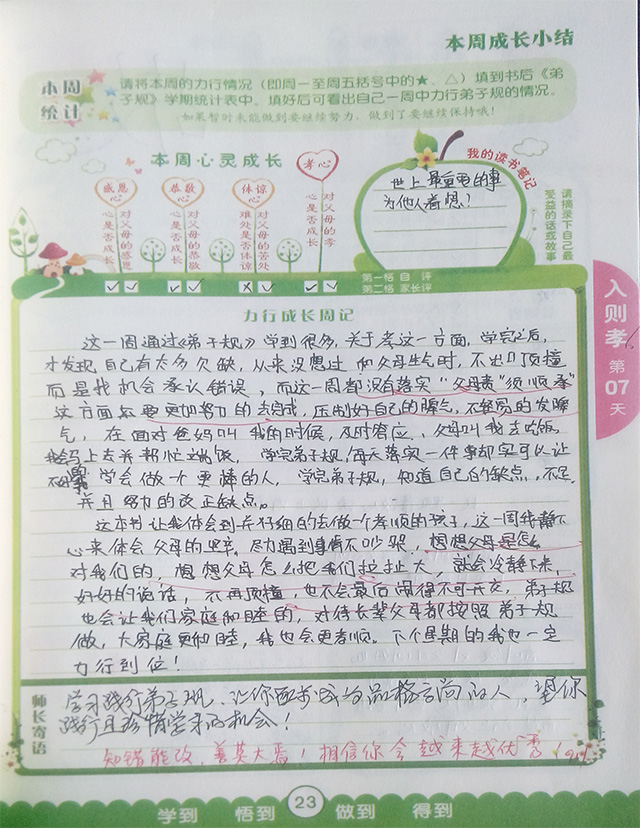 本周成长小结
本周
统计
请将本周的力行情况（即周一至周五括号中的★、△）填到书后《弟
子规》学期统计表中。填好后可看出自己一周中力行弟子规的情况。
如果暂时未能做到要继续努力，做到了要继续保持哦！
本周心灵成长
感恩心
对父母的感恩心是否成长
恭敬心
对父母的恭敬心是否成长
体谅心
对父母的苦处难处是否体谅
孝心
对父母的孝心是否成长
第一格 自 评
第二格 家长评
我的读书笔记
世上最重要的事
为他人着想！
请摘录下自己最
受益的话或故事
入则孝
第
07
天
力行成长周记
这一周通过《弟子规》学到很多，关于孝这一方面，学完之后，
才发现自己有太多欠缺，从来没想过 和父母生气时，不出口顶撞
而是找机会承认错误，而这一周都没有落实“父母责”“须顺承”
这方面 要更加努力的去完成，压制好自己的脾气，不轻易的发脾
气，在面对爸妈叫我的时候，及时答应，父母叫我去吃饭，
马上去并帮忙 饭，学完弟子规，每天落实一件事却实可以让
学会做一个更棒的人，学完弟子规，知道自己的缺点，不足，
并且努力的改正缺点。
这本书让我体会到 仔细的去做一个孝顺的孩子，这一周我静下
心来体会父母的 遇到事情不吵架，想想父母是怎么
对我们的，想想父母怎么把我们拉扯大，就会冷静下来，
好好的说话，不再顶撞，也不会最后闹得不可开交，弟子规
也会让我们家庭和睦的，对待长辈父母都按照弟子规
做，大家庭更和睦，我也会更孝顺。下个星期的我也一定
力行到位！
师长寄语
学习践行弟子规，让你 成为品格高尚的人，望你
践行且珍惜学习的机会！
知错能改，善莫大焉！相信你会越来越优秀
学到 悟到 23 做到 得到